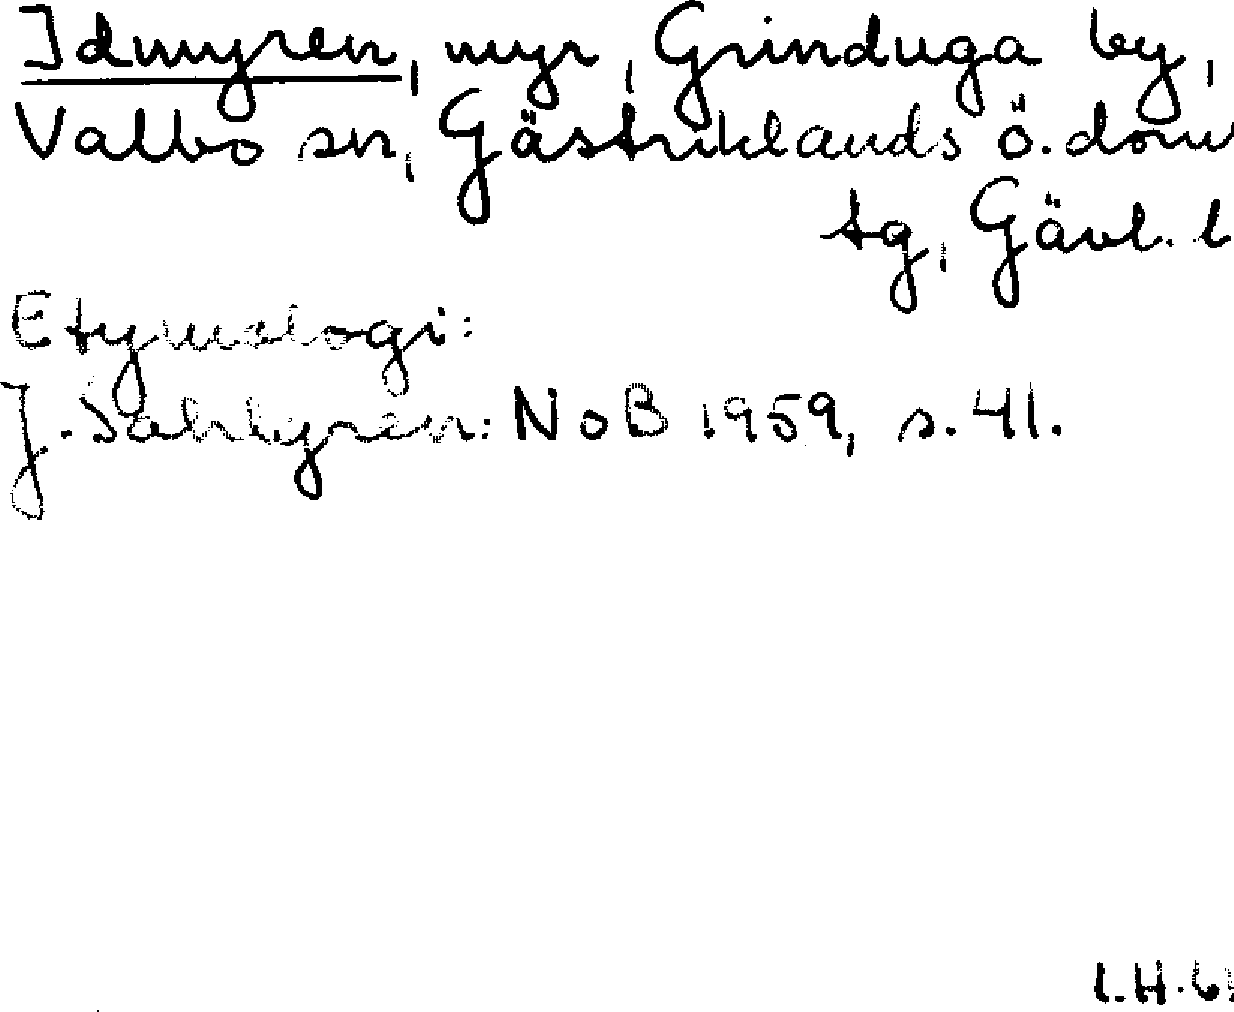 Idmyren, myr, Grinduga by,
Valbo sn, Gästriklands ö. dom
tg, Gävl. l
Etymologi:
J. Sahlgren: NoB 1959, s. 41.
I.H. 6